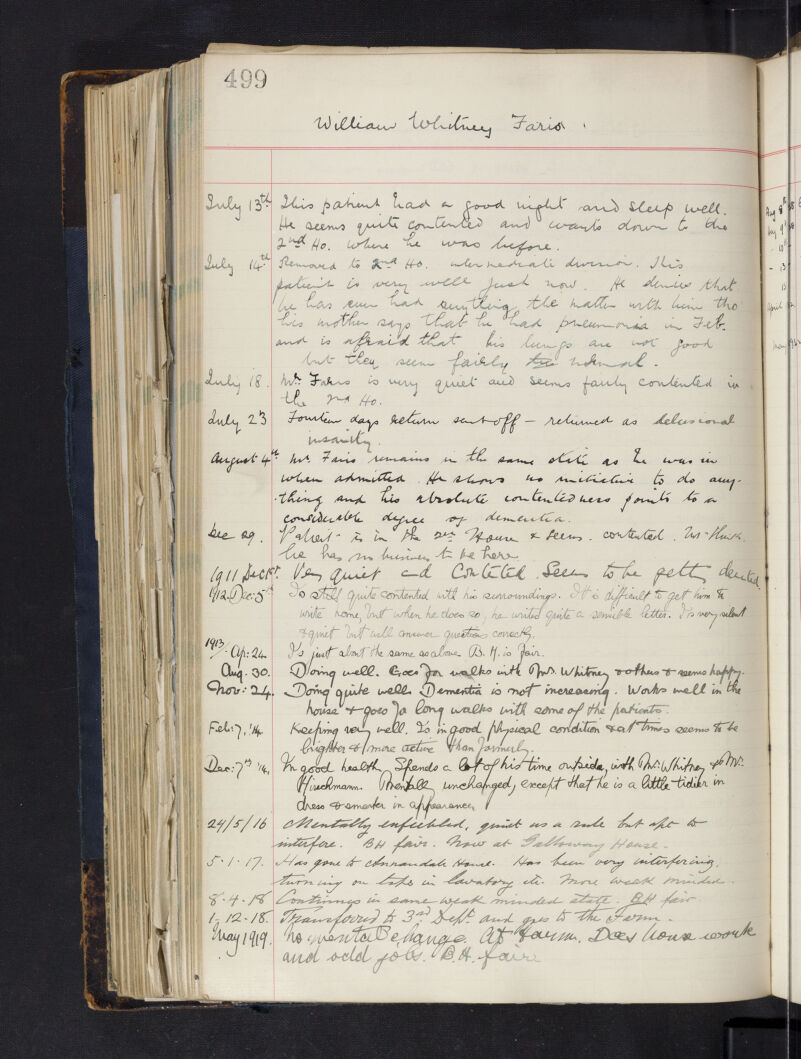 499
William Whitney Faris.
July 13th This patient had a good night and sleep well.
He seems quite contented and wants down to the
2nd Ho. where he was before.
July 14th Removed to 2nd Ho. intermediate division. This
patient is very well just now. He denies that
he has ever had anything the matter with him tho
his mother says that he had pneumonia in Feb.
and is afraid that his lungs are not good
but they seem fairly normal.
July 18. Mr Faris is very quiet and seems fairly contented in
the 2nd Ho.
July 23 Fourteen days return sent off – returned as delusional
insanity.
August 4th Mr Faris remains in the same state as he was in
when admitted. He shows no initiative to do any-
thing and his absolute contentedness points to a
considerable degree of dementia.
Dec 29. Patient is in the 2nd House & seems contented.
he has no business to be here
1911 Dec 1st. Very quiet and contented. Seems to be getting demented
1912 Dec: 5th Is still quite contented with his surroundings. It is difficult to get him to
write home, but when he does so, he writes quite a sensible letter. Is very silent
& quiet but will answer questions correctly.
1913 Ap: 24. Is just about the same as above. B.H. is fair.
Aug. 30. Doing well. Goes for walks with Mr. Whitney & others & seems happy.
Nov: 24. Doing quite well. Dementia is not increasing. Works well in the
house & goes for long walks with some of the patients.
Feb: 7, '14. Keeping very well. Is in good physical condition & at times seems to be
brighter & more active than formerly.
Dec: 7th '14. In good health. Spends a lot of his time outside, with Mr. Whitney & Mr.
Hirschmann. Mentally unchanged, except that he is a little tidier in
dress & smarter in appearance.
24/5/16 Mentally enfeebled, quiet as a rule but apt to
interfere. BH fair. Now at Galloway House.
5.1.17. Has gone to Annandale House. Has been very interfering,
turning on taps in lavatory etc. More weak minded.
8.4.18 Continues in same weak minded state. BH fair
1.12.18. Transferred to 3rd Dept. and goes to the Farm.
May 1919. No mental change. At farm. Does house work
and odd jobs. B.H. fair
Aug 8th
Aug 9th